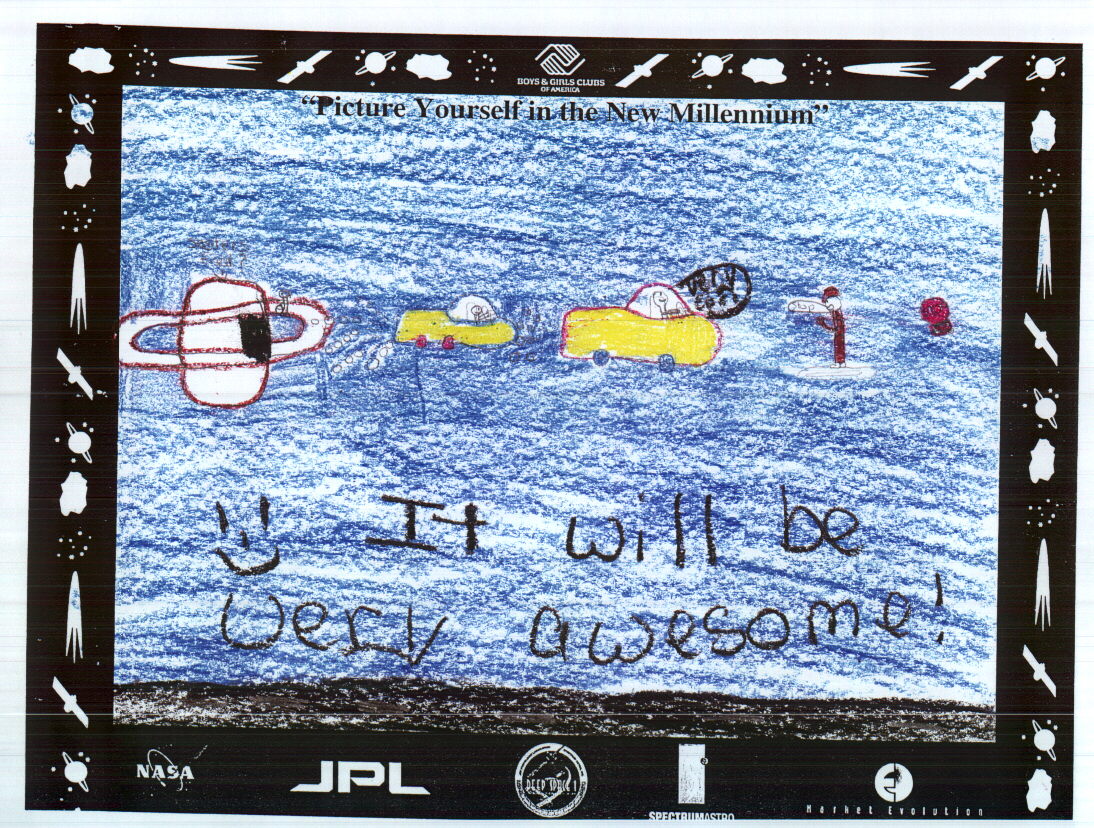 BOYS & GIRLS CLUBS
OF AMERICA
"Picture Yourself in the New Millennium"
very
It will be
very awesome!
NASA
JPL
DEEP SPACE 1
SPECTRUMASTRO
Market Evolution